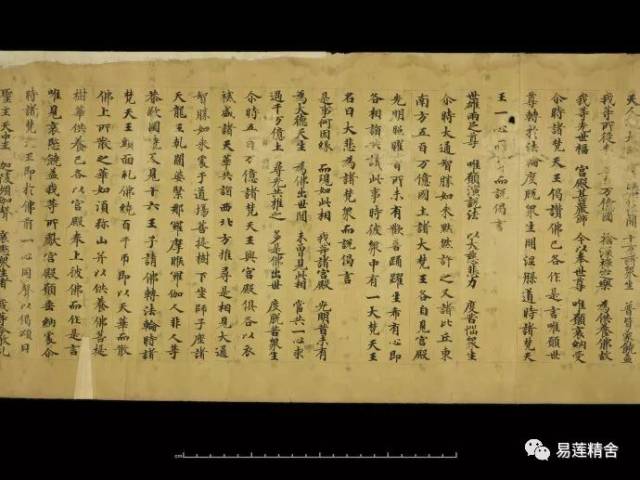 天人大 十方諸眾生 普皆蒙饒益
我等所從 万億國 捨深禪定樂 為供養佛故
我等先世福 宮殿甚嚴飾 今以奉世尊 唯願哀納受
尒時諸梵天王偈讚佛已各作是言唯願世
尊轉於法輪度脫眾生開涅槃道時諸梵天
王一心同聲而說偈言
世雄兩足尊 唯願演說法 以大慈悲力 度苦惱眾生
尒時大通智勝如來默然許之又諸比丘東
南方五百万億國土諸大梵王各自見宮殿
光明照曜昔所未有歡喜踊躍生希有心即
各相詣共議此事時彼眾中有一大梵天王
名曰大悲為諸梵眾而說偈言
是事何因緣 而現如此相 我等諸宮殿 光明昔未有
為大德天生 為佛出世間 未曾見此相 當共一心求
過千万億土 尋光共推之 多是佛出世 度脫苦眾生
尒時五百万億諸梵天王與宮殿俱各以衣
裓盛諸天華共詣西北方推尋是相見大通
智勝如來處于道場菩提樹下坐師子座諸
天龍王乾闥婆緊那羅摩睺羅伽人非人等
恭敬圍繞及見十六王子請佛轉法輪時諸
梵天王頭面礼佛繞百千帀即以天華而散
佛上所散之華如須弥山并以供養佛菩提
樹華供養已各以宮殿奉上彼佛而作是言
唯見哀愍饒益我等所獻宮殿願垂納處尒
時諸梵天王即於佛前一心同聲以偈頌曰
聖主天中王 迦陵頻伽聲 哀愍眾生者 我等今敬礼
cm
易莲精舍